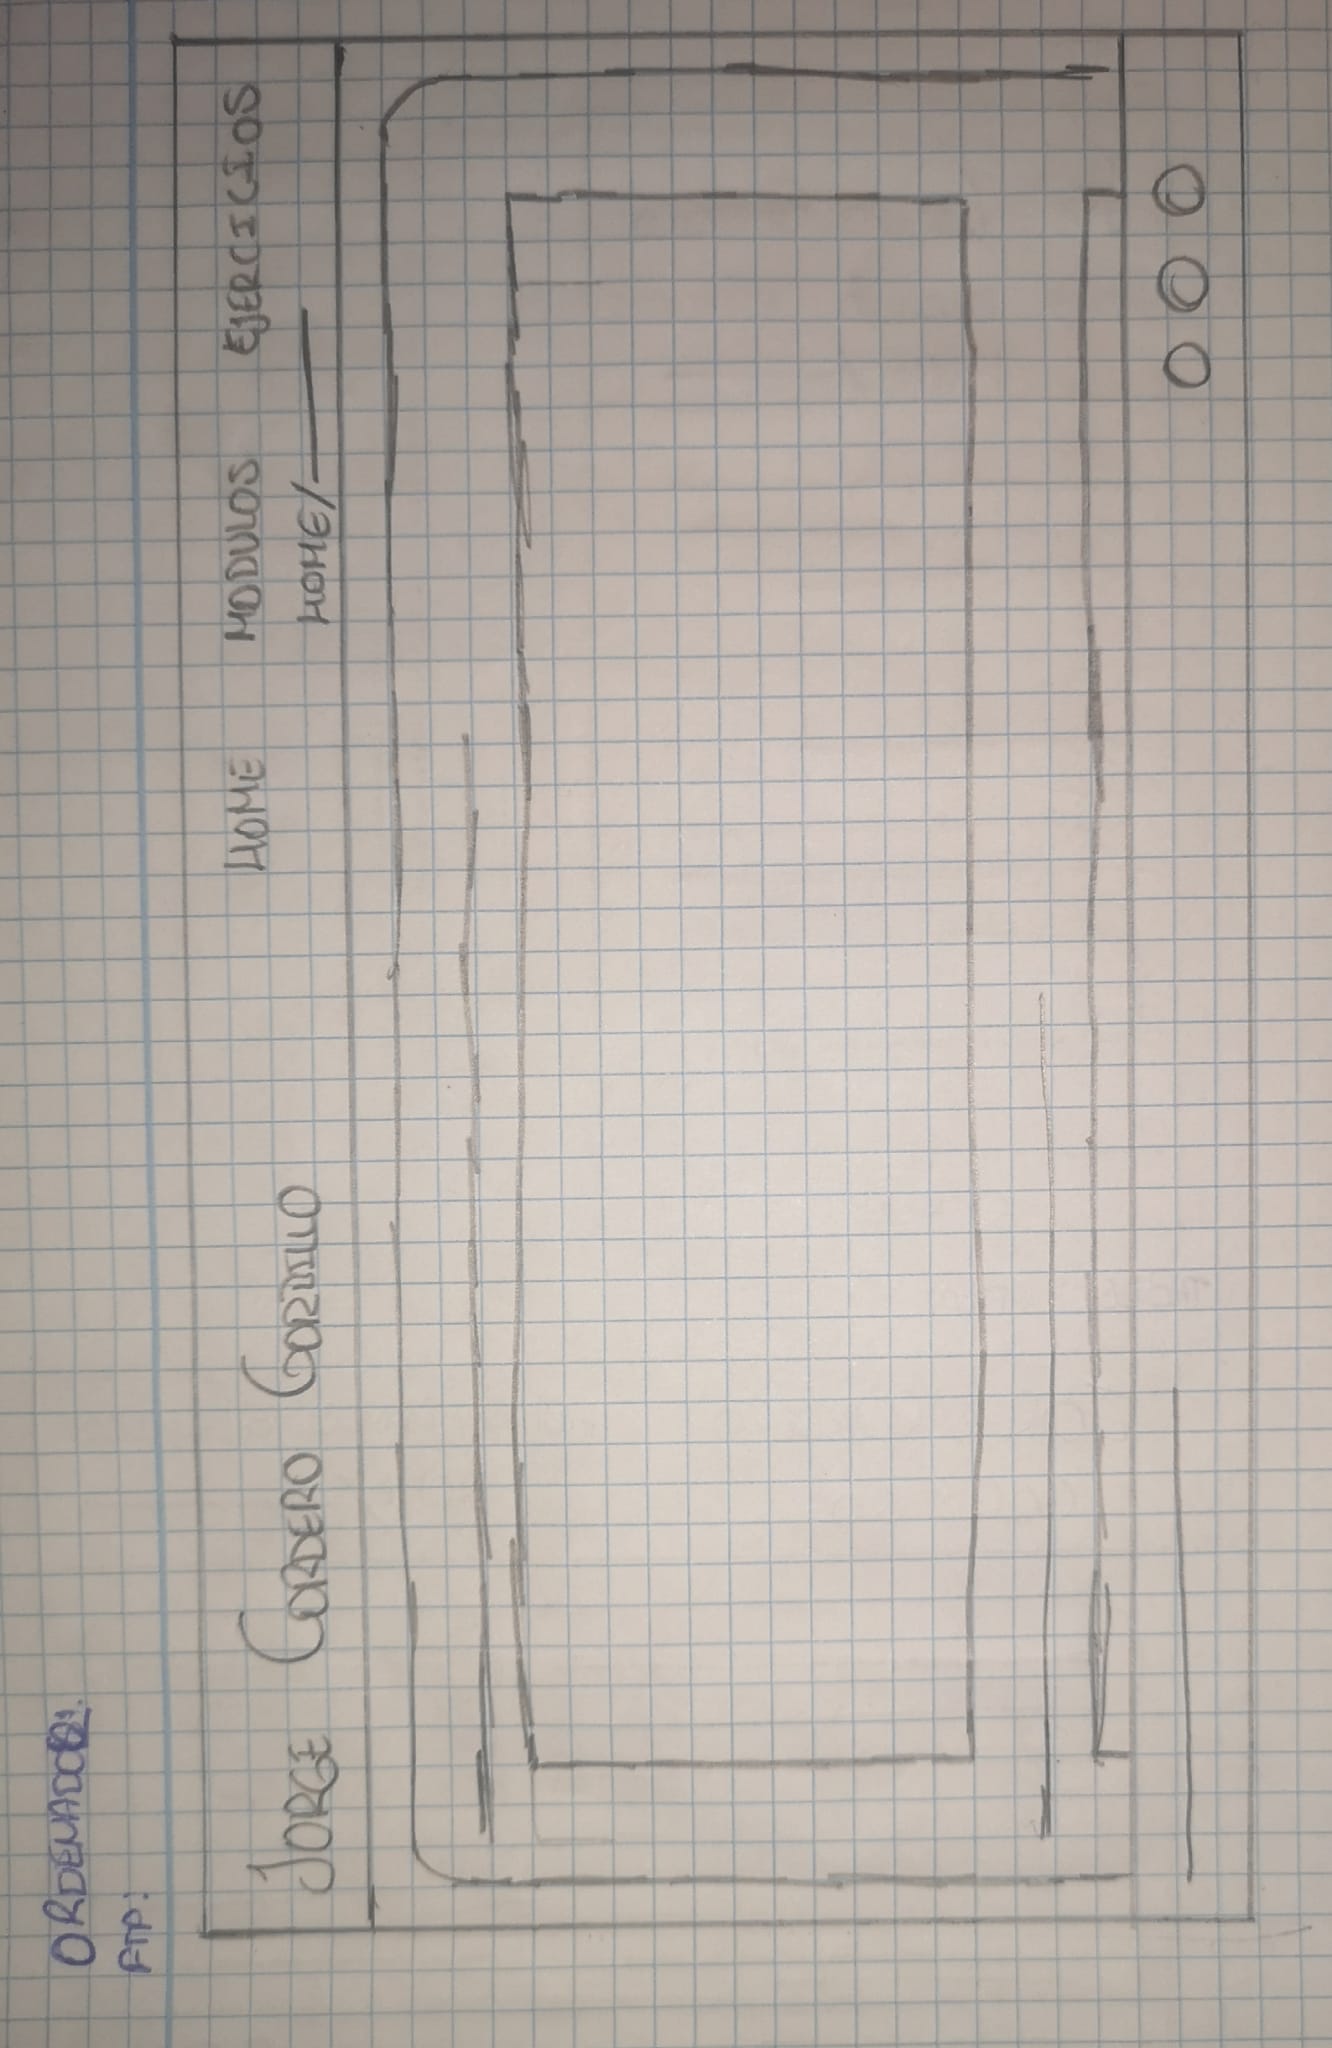 ORDENADOR:
FTP:
JORGE CORDERO GORDILLO
HOME MODULOS EJERCICIOS
HOME/